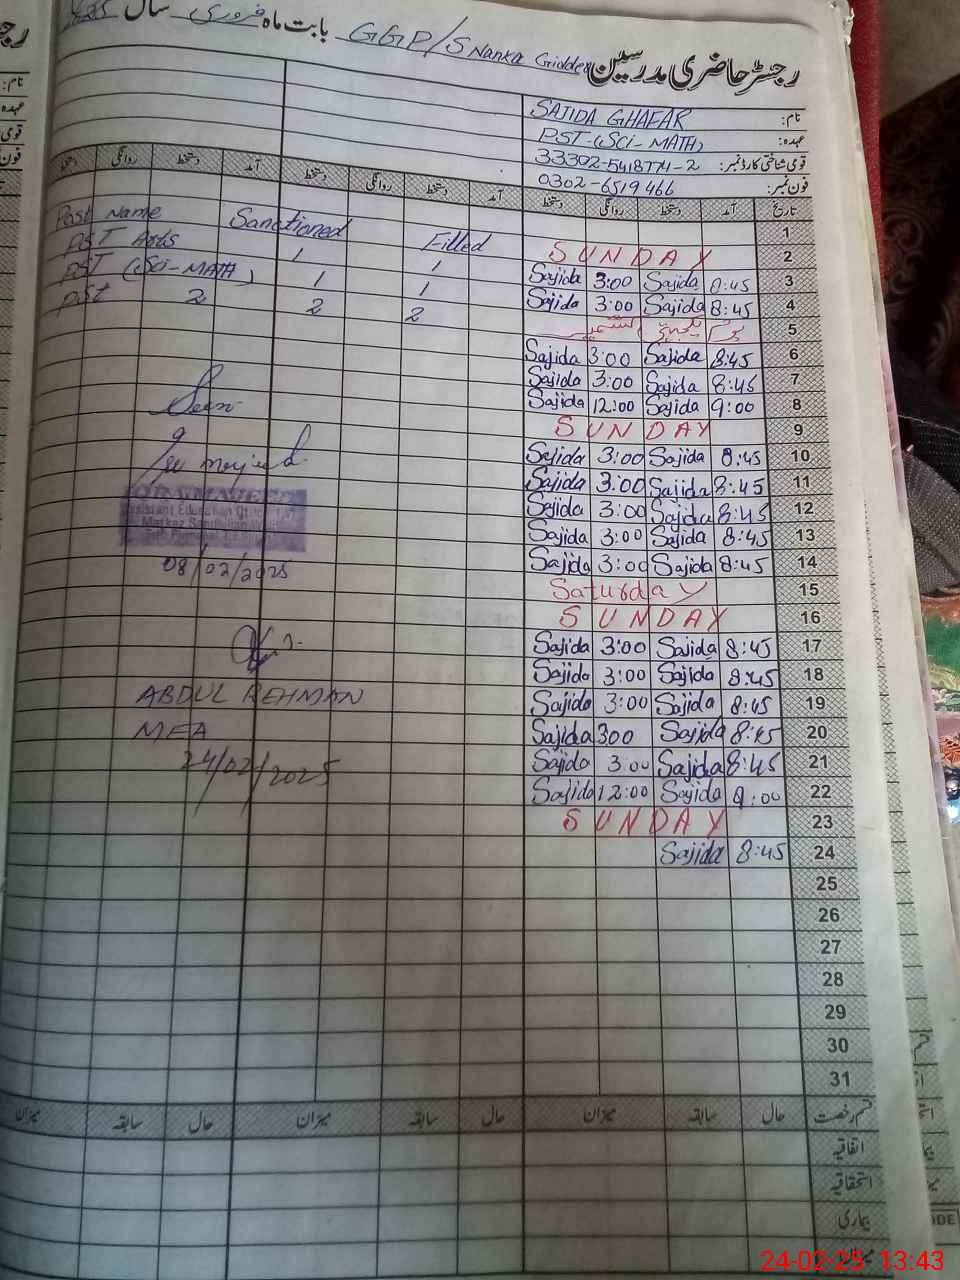 رجسٹر حاضری مدرسین GGP/S Nanka Gidder بابت ماہ فروری سال
نام: SAJIDA GHAFAR
عہدہ: PST-(SCI-MATH)
قومی شناختی کارڈ نمبر:
فون نمبر: 0302-6519466
تاریخ آمد دستخط روانگی دستخط آمد دستخط روانگی دستخط آمد دستخط روانگی دستخط
1
Post Name Sanctioned Filled
2 SUNDAY
PST Arts 1 1
3 Sajida 3:00 Sajida 8:45
PST (Sci-MATH) 1 1
4 Sajida 3:00 Sajida 8:45
PST 2 2 2
5 یوم یکجہتی کشمیر
6 Sajida 3:00 Sajida 8:45
7 Sajida 3:00 Sajida 8:45
8 Sajida 12:00 Sajida 9:00
Seen
9 SUNDAY
10 Sajida 3:00 Sajida 8:45
11 Sajida 3:00 Sajida 8:45
12 Sajida 3:00 Sajida 8:45
Assistant Education Officer
Markaz
13 Sajida 3:00 Sajida 8:45
14 Sajida 3:00 Sajida 8:45
08/02/2025
15 Saturday
16 SUNDAY
17 Sajida 3:00 Sajida 8:45
18 Sajida 3:00 Sajida 8:45
ABDUL REHMAN
19 Sajida 3:00 Sajida 8:45
MEA
20 Sajida 300 Sajida 8:45
24/02/2025
21 Sajida 3:00 Sajida 8:45
22 Sajida 12:00 Sajida 9:00
23 SUNDAY
24 Sajida 8:45
25
26
27
28
29
30
31
قسم رخصت حال سابقہ میزان حال سابقہ میزان حال سابقہ میزان
اتفاقیہ
استحقاقیہ
بیماری
24-02-25 13:43